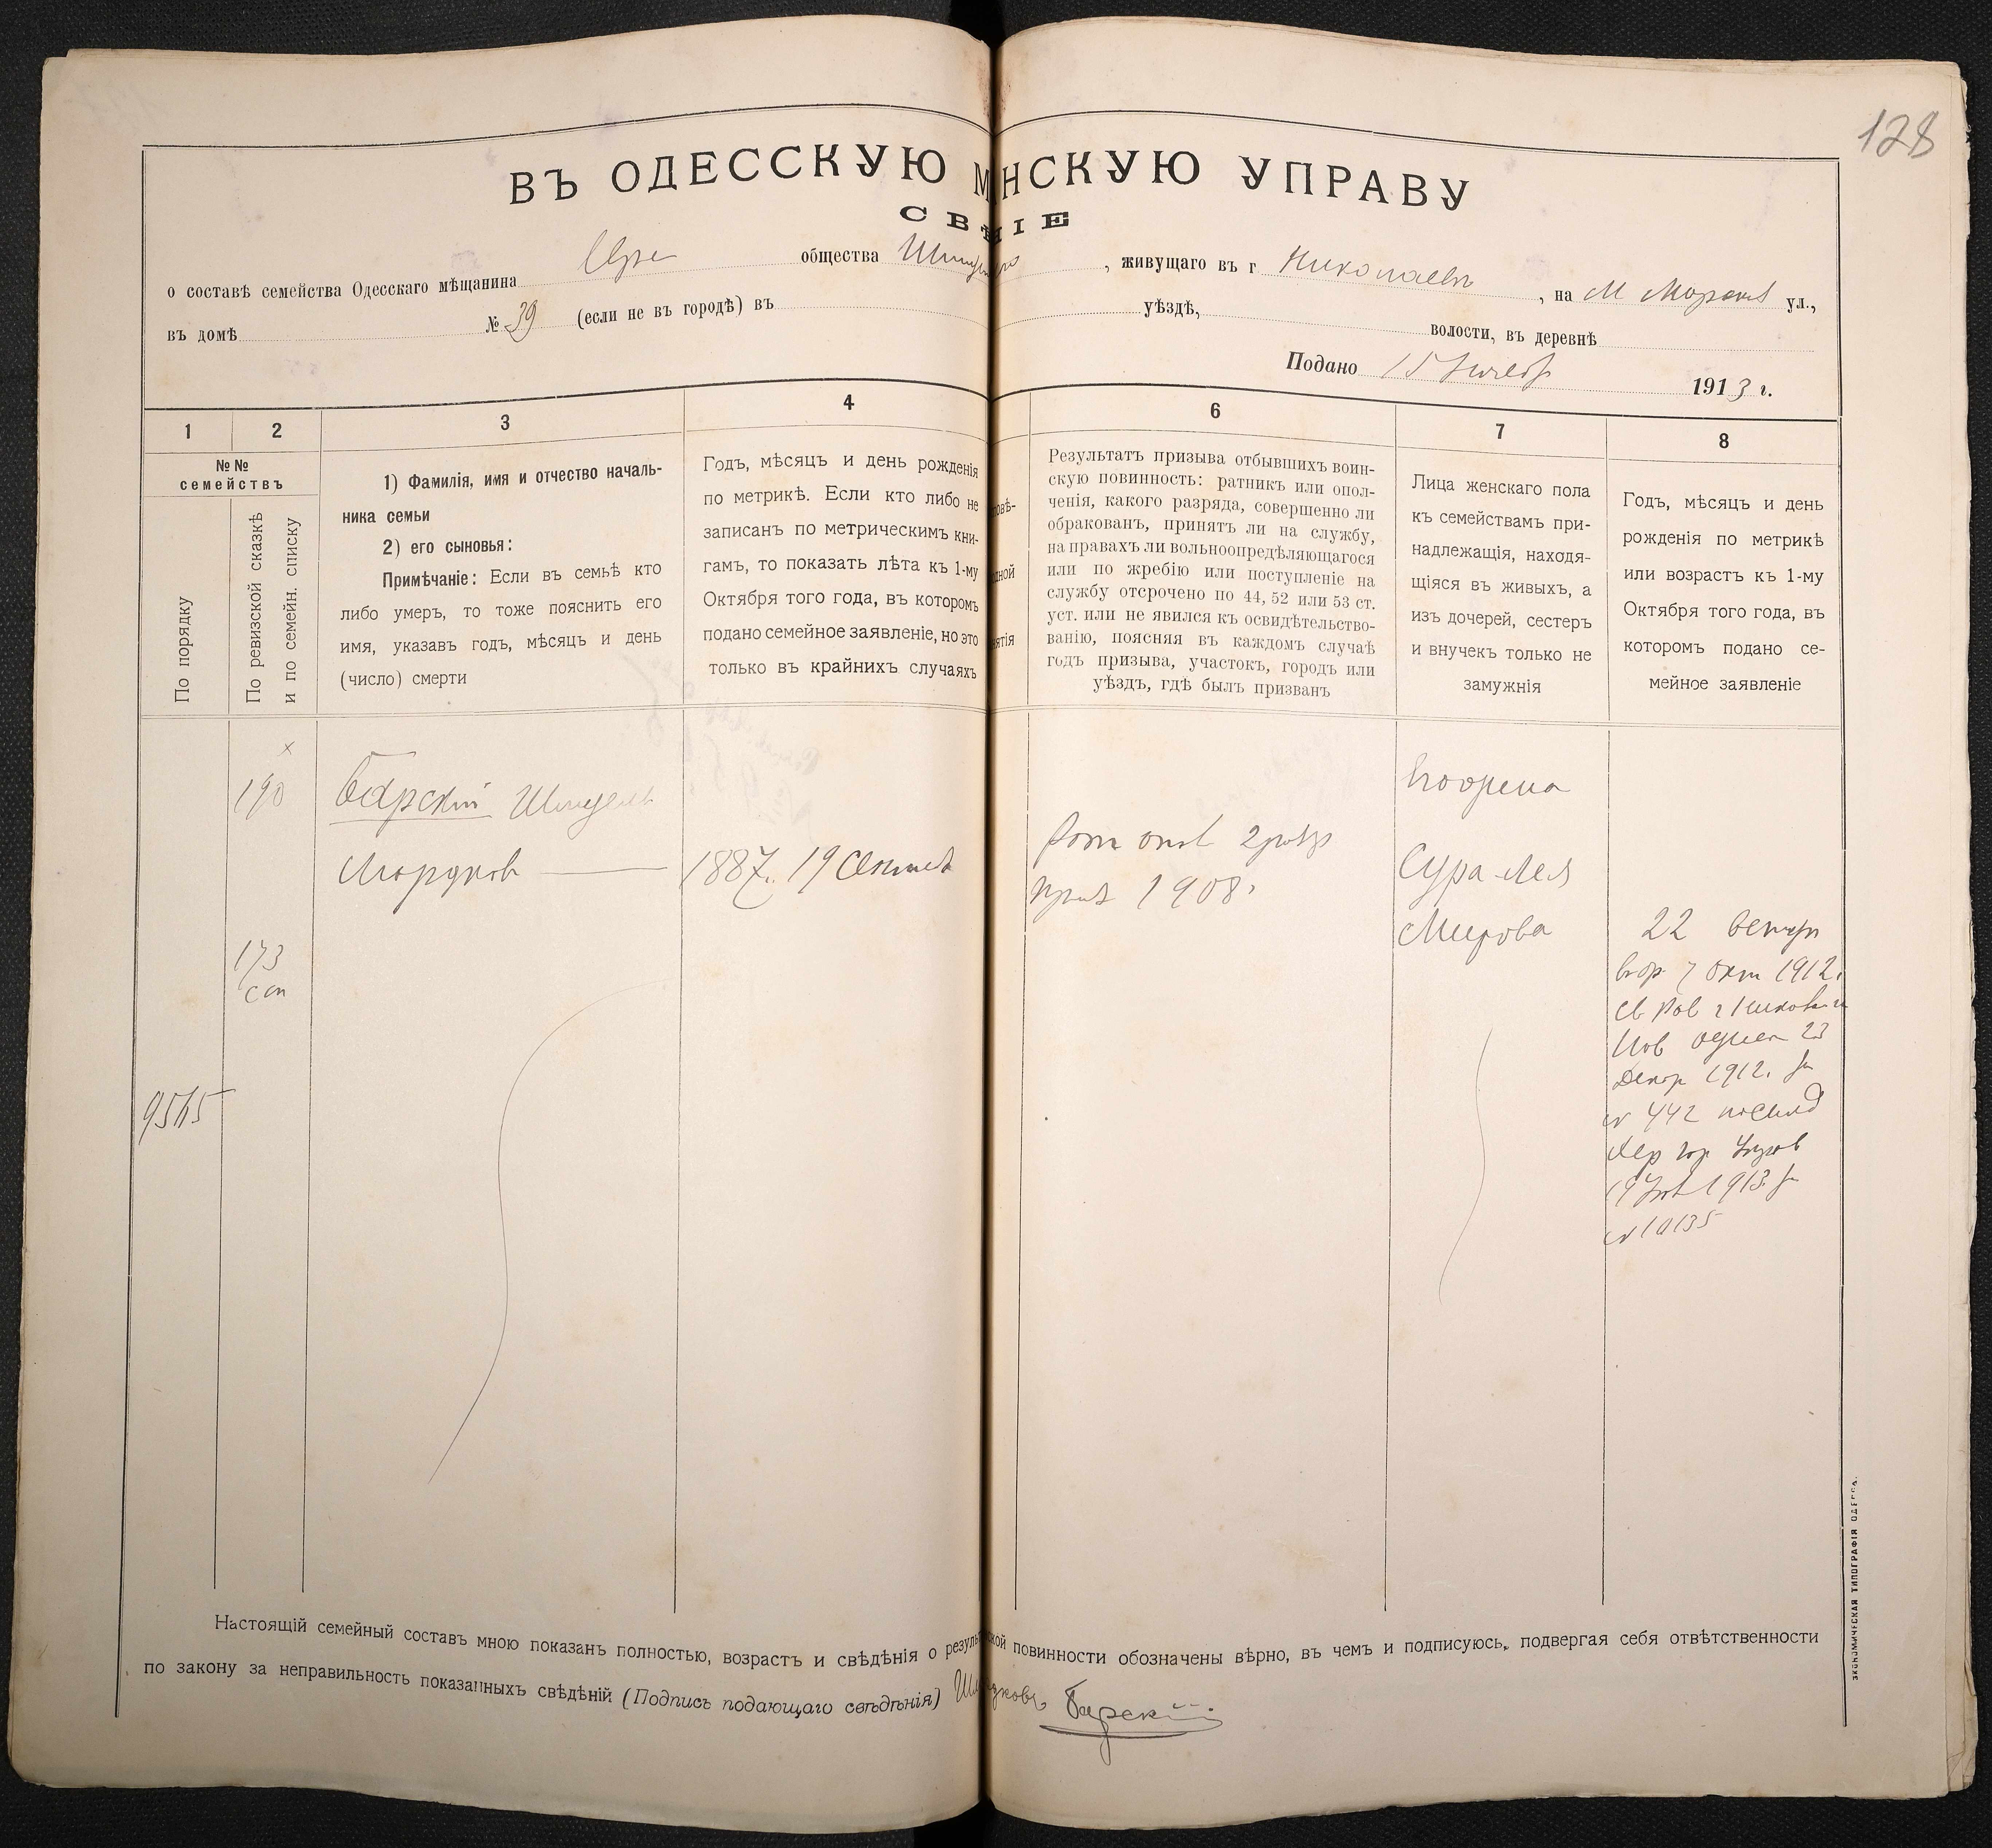 128
ВЪ ОДЕССКУЮ М НСКУЮ УПРАВУ
СВѢ НІЕ
о составѣ семейства Одесскаго мѣщанина Евр общества , живущаго въ г Николаевѣ , на М Морской ул.,
въ домѣ № 39 (если не въ городѣ) въ уѣздѣ, волости, въ деревнѣ
Подано 15 1913 г.
1 2 3 4 6 7 8
№№
семействъ
По порядку
По ревизской сказкѣ
и по семейн. списку
1) Фамилія, имя и отчество началь-
ника семьи
2) его сыновья:
Примѣчаніе: Если въ семьѣ кто
либо умеръ, то тоже пояснить его
имя, указавъ годъ, мѣсяцъ и день
(число) смерти
Годъ, мѣсяцъ и день рожденія
по метрикѣ. Если кто либо не
записанъ по метрическимъ кни-
гамъ, то показать лѣта къ 1-му
Октября того года, въ которомъ
подано семейное заявленіе, но это
только въ крайнихъ случаяхъ
Результатъ призыва отбывшихъ воин-
скую повинность: ратникъ или опол-
ченія, какого разряда, совершенно ли
обракованъ, принятъ ли на службу,
на правахъ ли вольноопредѣляющагося
или по жребію или поступленіе на
службу отсрочено по 44, 52 или 53 ст.
уст. или не явился къ освидѣтельство-
ванію, поясняя въ каждомъ случаѣ
годъ призыва, участокъ, городъ или
уѣздъ, гдѣ былъ призванъ
Лица женскаго пола
къ семействамъ при-
надлежащія, находя-
щіяся въ живыхъ, а
изъ дочерей, сестеръ
и внучекъ только не
замужнія
Годъ, мѣсяцъ и день
рожденія по метрикѣ
или возрастъ къ 1-му
Октября того года, въ
которомъ подано се-
мейное заявленіе
190
Барскій Шмуель
Мордков
1887. 19 Сентяб
Рат опол 2 разр
приз 1908г
Сура-Лея
Меерова
173
сп
9565
22
7 Окт 1912г
23
Декар 1912г за
№ 442
1913 за
№ 10135
Настоящій семейный составъ мною показанъ полностью, возрастъ и свѣдѣнія о резуль ской повинности обозначены вѣрно, въ чемъ и подписуюсь, подвергая себя отвѣтственности
по закону за неправильность показанныхъ свѣдѣній (Подпись подающаго свѣдѣнія) Барскій
ЭКОНОМИЧЕСКАЯ ТИПОГРАФІЯ ОДЕССА.